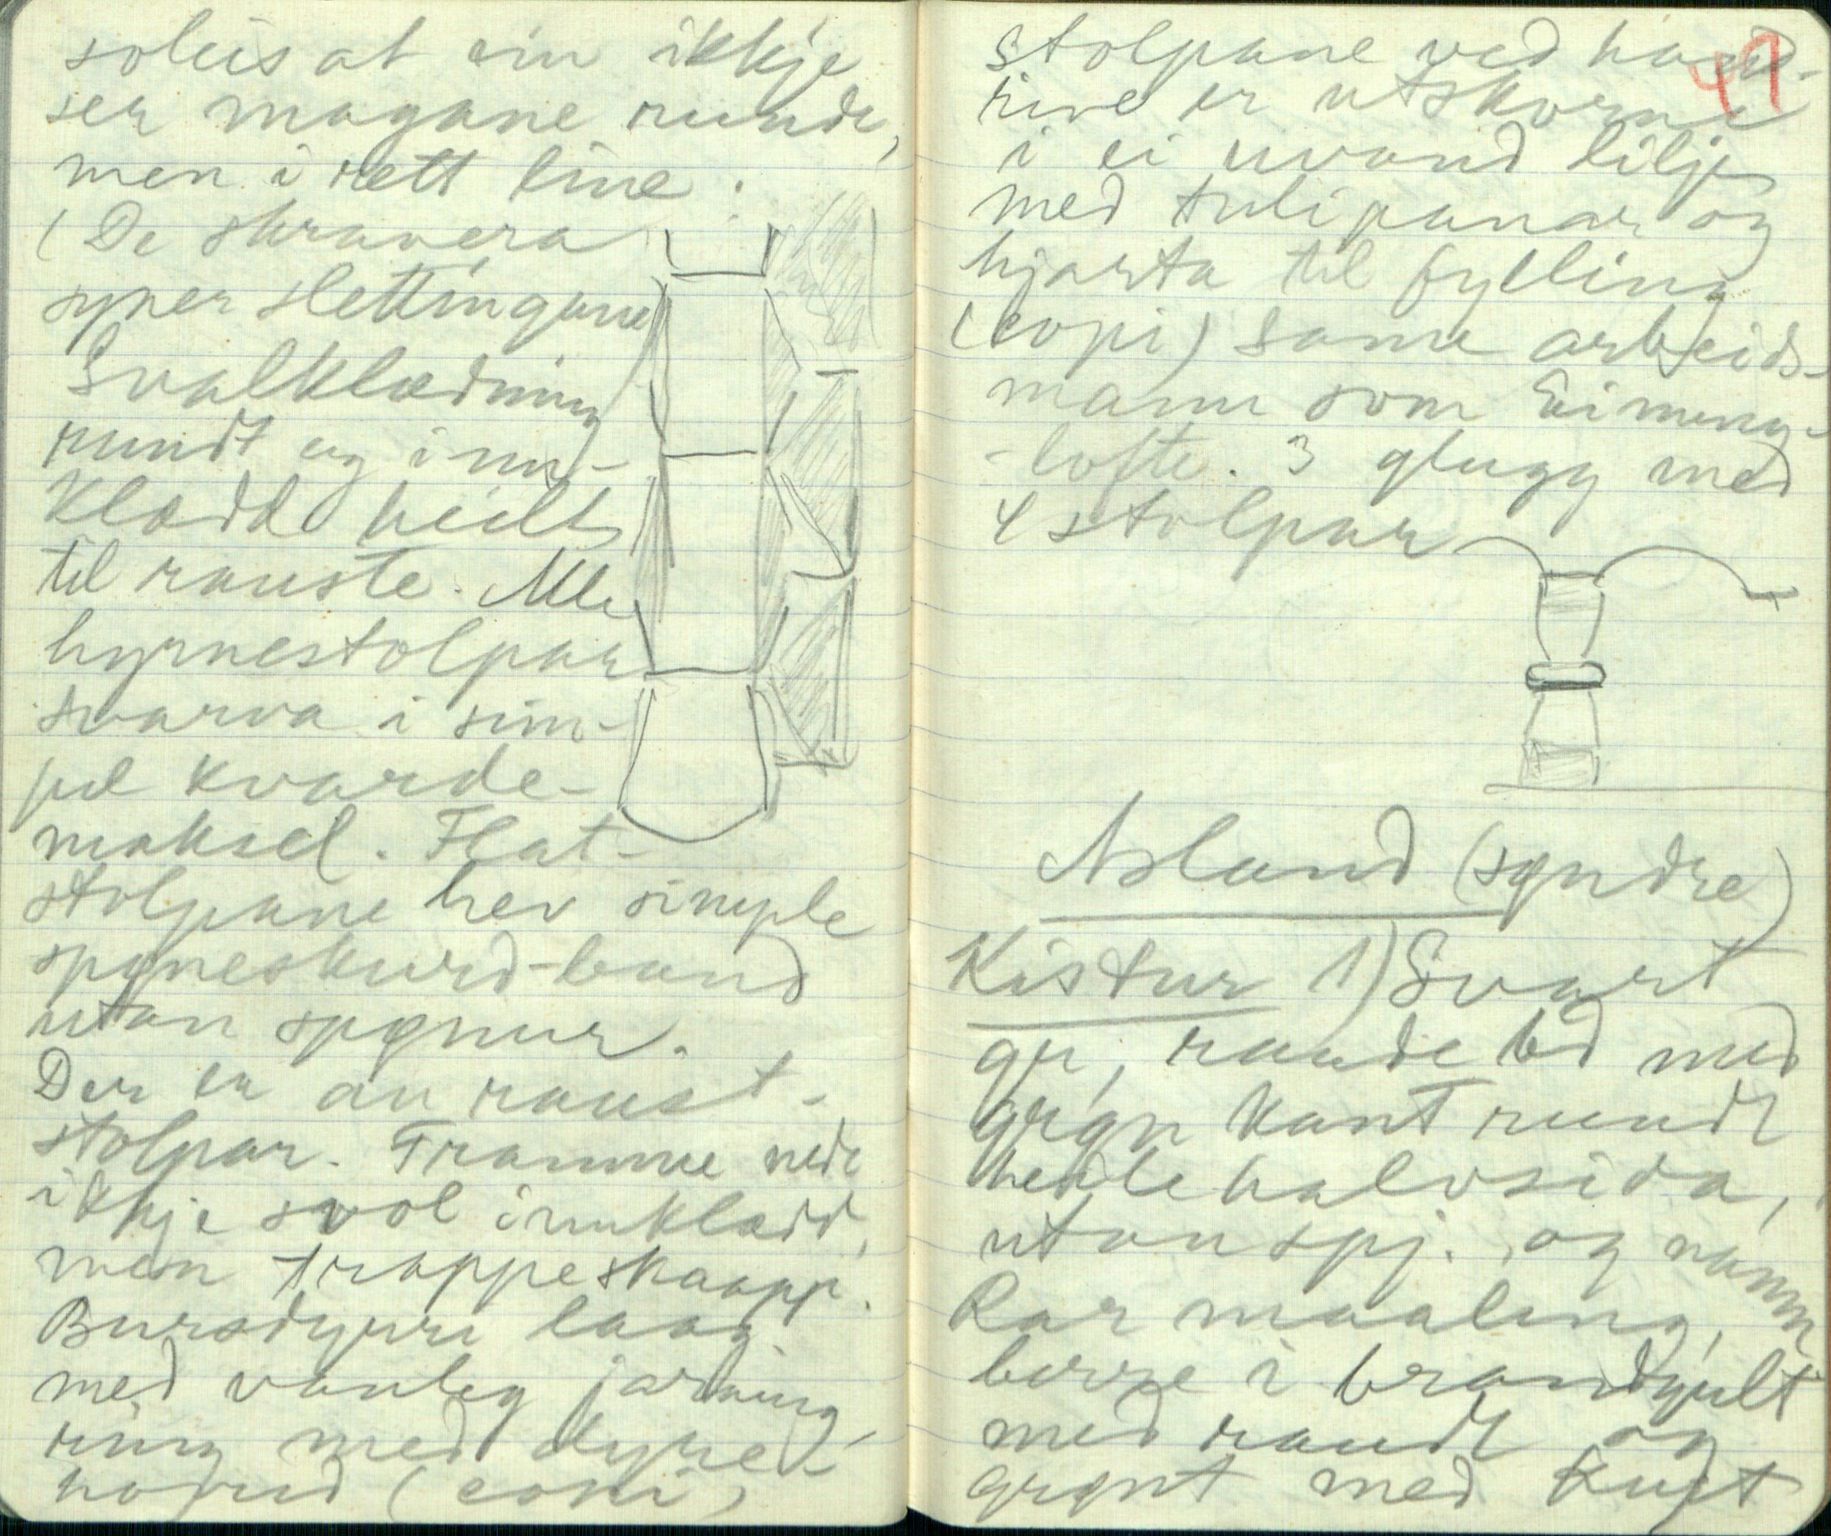 soleis at ein ikkje
ser magane runde,
men i rett line.
(De skravera
syner slettingane
Svalklædning
rundt og inn-
klædde heilt
til rauste. Alle
hyrnestolpar
svarva i sim-
pel kvarde-
maksel. Flat-
stolpane hev simple
spøneskurd-band
utan spønur.
Der er au raust-
stolpar. Framme nede
ikkje sval innklædd,
men trappeskaapp.
Bursdyri laag
med vanleg jarnin
ring med dyre-
hovud (copi)
49
stolpane ved
rive er utskorne
i ei uvand lilje
med tulipanar og
hjarta til fylling
(copi) Same arbeids-
mann som Eimung-
-lofte. 3 glugg med
4 stolpar
Åsland (søndre)
Kistur 1) Svart
gr, raude bd med
grøn kant rundt
heile halvsida,
utan spj. og namn
Rar maaling,
berre i brandgult
med raudt og
grønt med kvit